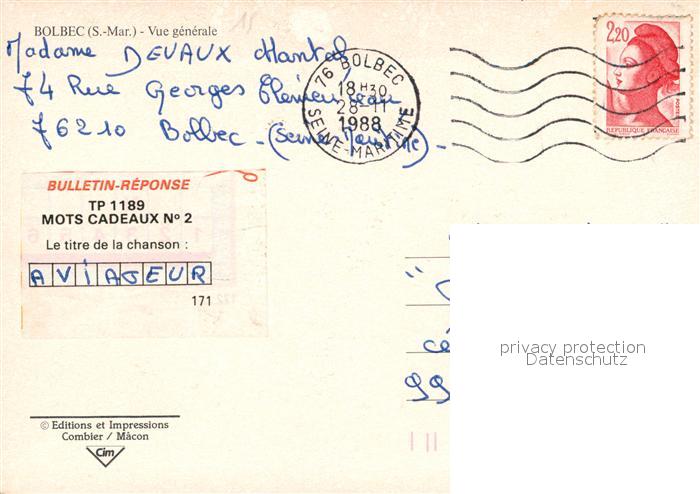 BOLBEC (S.-Mar.) - Vue générale
Madame DEVAUX Chantal
74 Rue Georges Clémenceau
76210 Bolbec - (Seine Maritime) -
76 BOLBEC
18 H30
28-11
1988
SEINE-MARITIME
2,20
POSTES
REPUBLIQUE FRANÇAISE
BULLETIN-RÉPONSE
TP 1189
MOTS CADEAUX Nº 2
Le titre de la chanson :
AVIATEUR
171
cé
99
privacy protection
Datenschutz
© Editions et Impressions
Combier / Mâcon
Cim